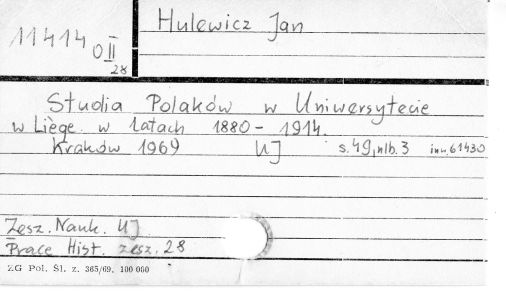 11414 O II
28
Hulewicz Jan
Studia Polaków w Uniwersytecie
w Liège w latach 1880-1914.
Kraków 1969 UJ s. 49, nlb. 3 inw. 61430
Zesz. Nauk. UJ
Prace Hist. zesz. 28
ZG Pol. Śl. z. 365/69. 100 000